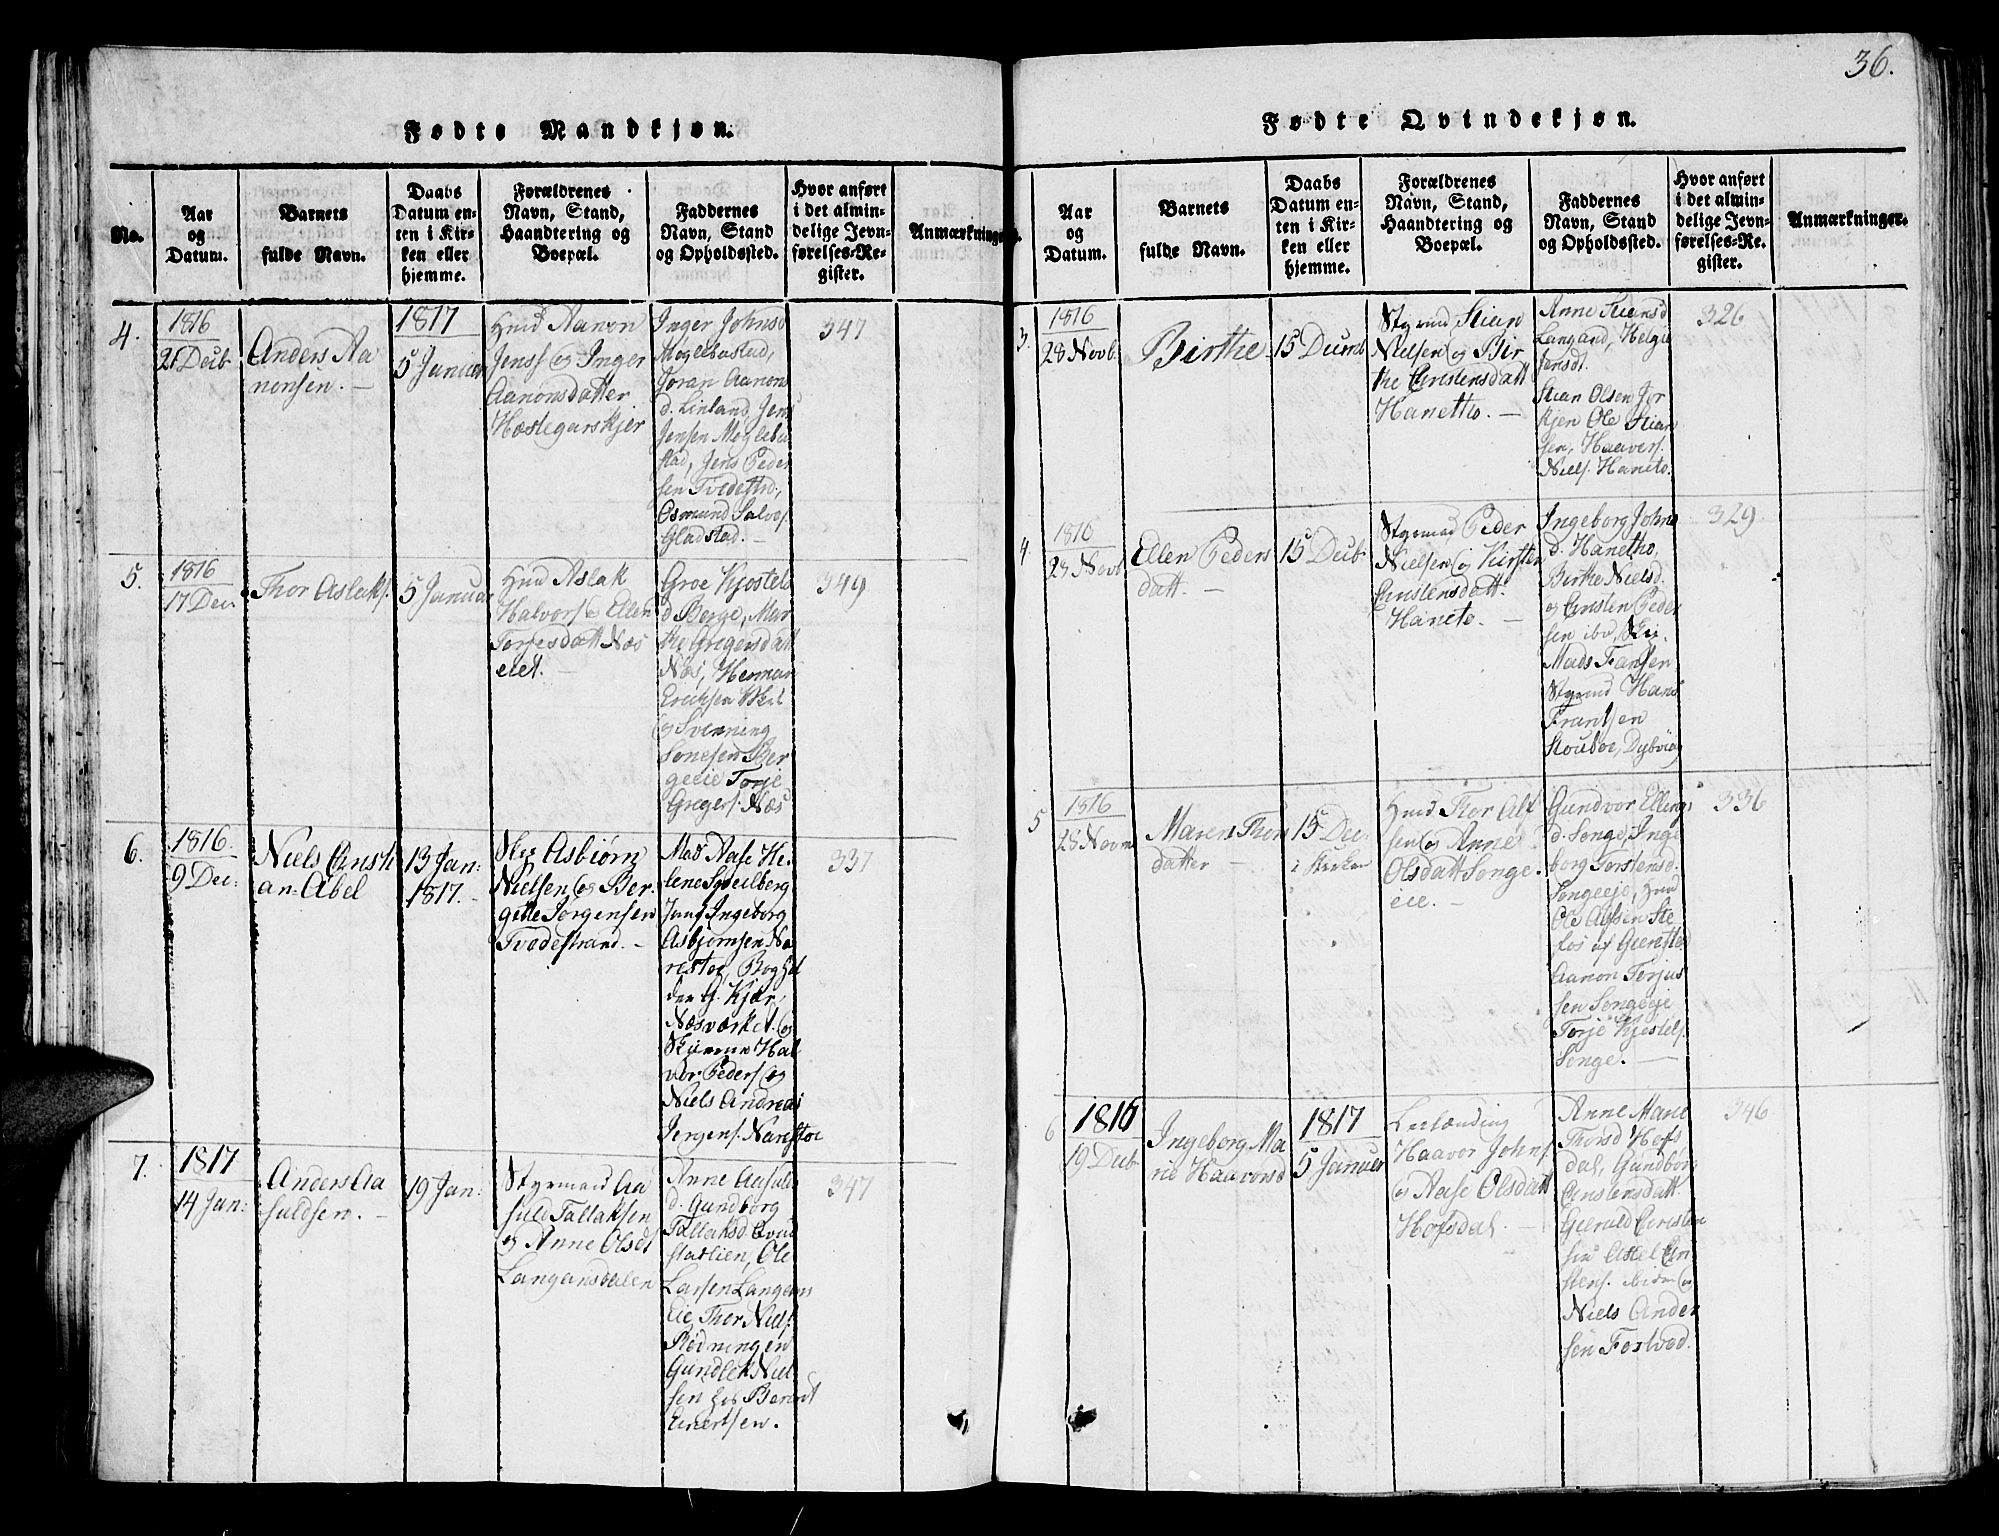 36.
Fødte Mandkjøn.
No.
Aar
og
Datum.
Barnets
fulde Navn.
Daabs
Datum en-
ten i Kir-
ken eller
hjemme.
Forældrenes
Navn, Stand,
Haandtering og
Boepæl.
Faddernes
Navn, Stand
og Opholdssted.
Hvor anført
i det almin-
delige Jevn-
førelses-Re-
gister.
Anmærkninger
4.
1816
21 Decb
Anders Aa
nonsen. —
1817
5 Januer
Hmd Aanon
Jenss og Inger
Aanonsdatter
Hæstegarskjer
Inger Johnsd
Moglebustad,
Joran Aanons
d. Linland, Jens
Jensen Moglebu
stad, Jens Peder
sen Tvedestrd,
Osmund Salves.
Gladstad. —
347
5.
1816
17 Dec.
Thor Aslaks.
5 Januar
Hmd Aslak
Halvors og Ellen
Torjesdatt Næs
eiet. —
Groe Kjostels
d Berge, Mar
the Gregersdatt
Næs, Herman
Erichsen
og Svenning
Sonesen Ber
geeie Torje
Gregers. Næs
349
6.
1816.
9 Dec:
Niels Christi
an Abel
13 Jan:
1817. -
Asbiørn
Nielsen og Ber
gette Jørgensen
Tvedestrand. -
Mad Aase He
lene Sveilberg
Jomf Ingeborg
Asbjørnsen Na
restoe, Boghol
der G. Kjær,
Næsværket. og
Hal
vor Peders og
Niels Andreas
Jørgens. Narestoe
337
7.
1817
14 Jan:
Anders Aa
suldsen. -
19 Jan:
Styrmand Aa
suld Tallaksen
og Anne Olsdt
Langansdalen
Anne Aasulds
d. Gundborg
Tallaksd. Qvu
statlien, Ole
Larsen Langans
eie, Thor Niels.
Rødningen
Gundlek Niel
sen hos Berent
Evertsen.
347
Fødte Qvindekjøn.
Aar
og
Datum.
Barnets
fulde Navn.
Daabs
Datum en-
ten i Kir-
ken eller
hjemme.
Forældrenes
Navn, Stand,
Haandtering og
Boepæl.
Faddernes
Navn, Stand
og Opholdssted.
Hvor anført
i det almin-
delige Jevn-
førelses-Re-
gister.
Anmærkninger.
3
1816
28 Novb.
Birthe
15 Decmb
Styrmd Stian
Nielsen og Bir
the Christensdatt
Hanetho. —
Anne
Langand, Helgie
Jensdt.
Stian Olsen Jor
kjen Ole Stian
sen, Haavers.
Niels. Haneto.
326
4
1816
23 Novb
Ellen Peders
datt. -
15 Decb
Styrmd Peder
Nielsen og Kirsten
Christensdatt.
Haneto. —
Ingeborg Johns
d. Hanetho,
Birthe Nielsd.
og Christen Peder
sen ibd,
Mads Fansen
Styrmd Hans
Frantsen
Stoutoe, Dybvig
329
5
1816
28 Novm
Maren Thors
datter —
15 Dec
i Kirken
Hmd Thor Alf
sen og Anne
Olsdatt Songe.
eie. —
Gundvor Ellings
d. Songe, Inge
borg Torstensd.
Songeeje, Hmd
Ole Alfsen Ste
los af Gierestad
Aanon Terjus
sen Songeeje
Torje Kjestels.
Songe. —
336
6
1816
19 Decb
Ingeborg Ma
rie Haavorsd
1817
5 Januer
Leilænding
Haavor Johns.
og Aase Olsdatt
Hofsdal. —
Anne Marie
Thorsd Hofs
dal, Gundborg
Christensdatt.
Gierald Christen
sen Axel Chri
stens. ibidm og
Niels Ander
sen Fostved.
346